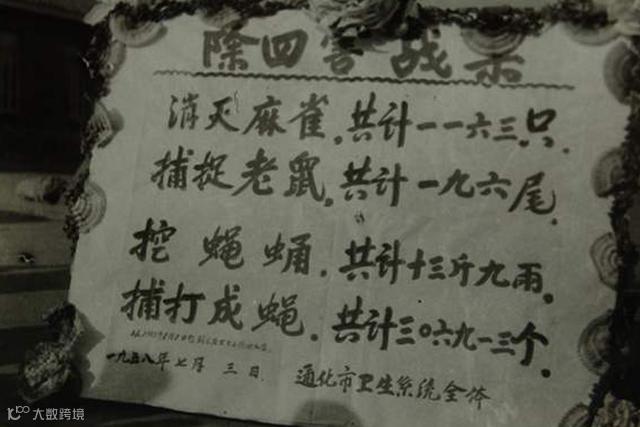 除四害战果
消灭麻雀,共计一一六三只.
捕捉老鼠,共计一九六尾.
挖蝇蛹.共计十三斤九两.
捕打成蝇.共计三〇六九一三个.
一九五八年七月三日.
通化市卫生系统全体
大数跨境